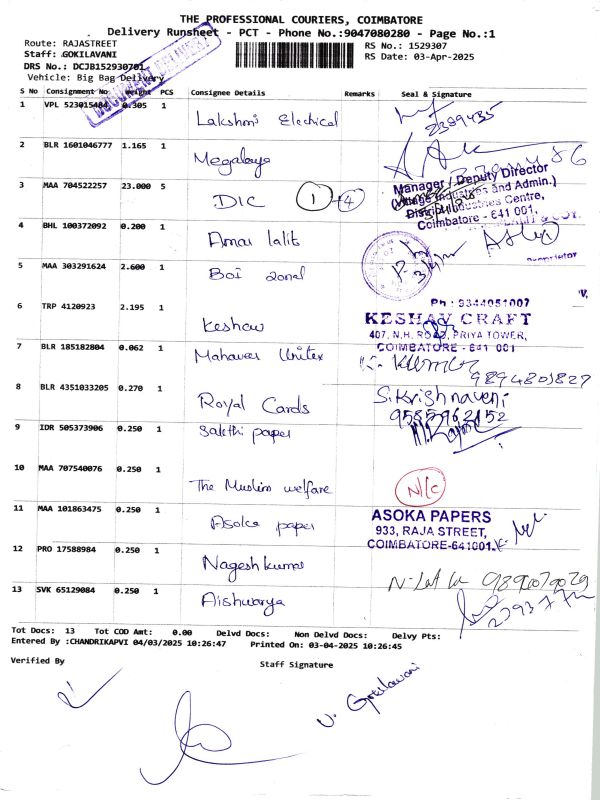 THE PROFESSIONAL COURIERS, COIMBATORE
Delivery Runsheet - PCT - Phone No.:9047080280 - Page No.:1
Route: RAJASTREET
RS No.: 1529307
Staff: GOKILAVANI
RS Date: 03-Apr-2025
DRS No.: DCJB152930701
Vehicle: Big Bag Delivery
S No Consignment No Weight PCS Consignee Details Remarks Seal & Signature
1 VPL 523015484 0.305 1 Lakshmi Electrical
2399435
2 BLR 1601046777 1.165 1 Megalaya
3 MAA 704522257 23.000 5 DIC 1 + 4
Manager / Deputy Director
(Village Industries and Admin.)
District Industries Centre,
Coimbatore - 641 001.
4 BHL 100372092 0.200 1 Amar lalit
Proprietor
5 MAA 303291624 2.600 1 Boi zonal
6 TRP 4120923 2.195 1 Keshav
Ph : 9344051007
KESHAV CRAFT
407, N.H. ROAD, PRIYA TOWER,
COIMBATORE - 641 001
7 BLR 185182804 0.062 1 Mahaveer Unitex
9894801827
8 BLR 4351033205 0.270 1 Royal Cards
S.Krishnaveni
9585962152
9 IDR 505373906 0.250 1 Sakthi paper
10 MAA 707540076 0.250 1 The Muslim welfare
N/C
11 MAA 101863475 0.250 1 Asoka paper
ASOKA PAPERS
933, RAJA STREET,
COIMBATORE-641001.
12 PRO 17588984 0.250 1 Nagesh kumar
9890079029
13 SVK 65129084 0.250 1 Aishwarya
Tot Docs: 13 Tot COD Amt: 0.00 Delvd Docs: Non Delvd Docs: Delvy Pts:
Entered By :CHANDRIKAPVI 04/03/2025 10:26:47 Printed On: 03-04-2025 10:26:45
Verified By
Staff Signature
V. Gokilavani